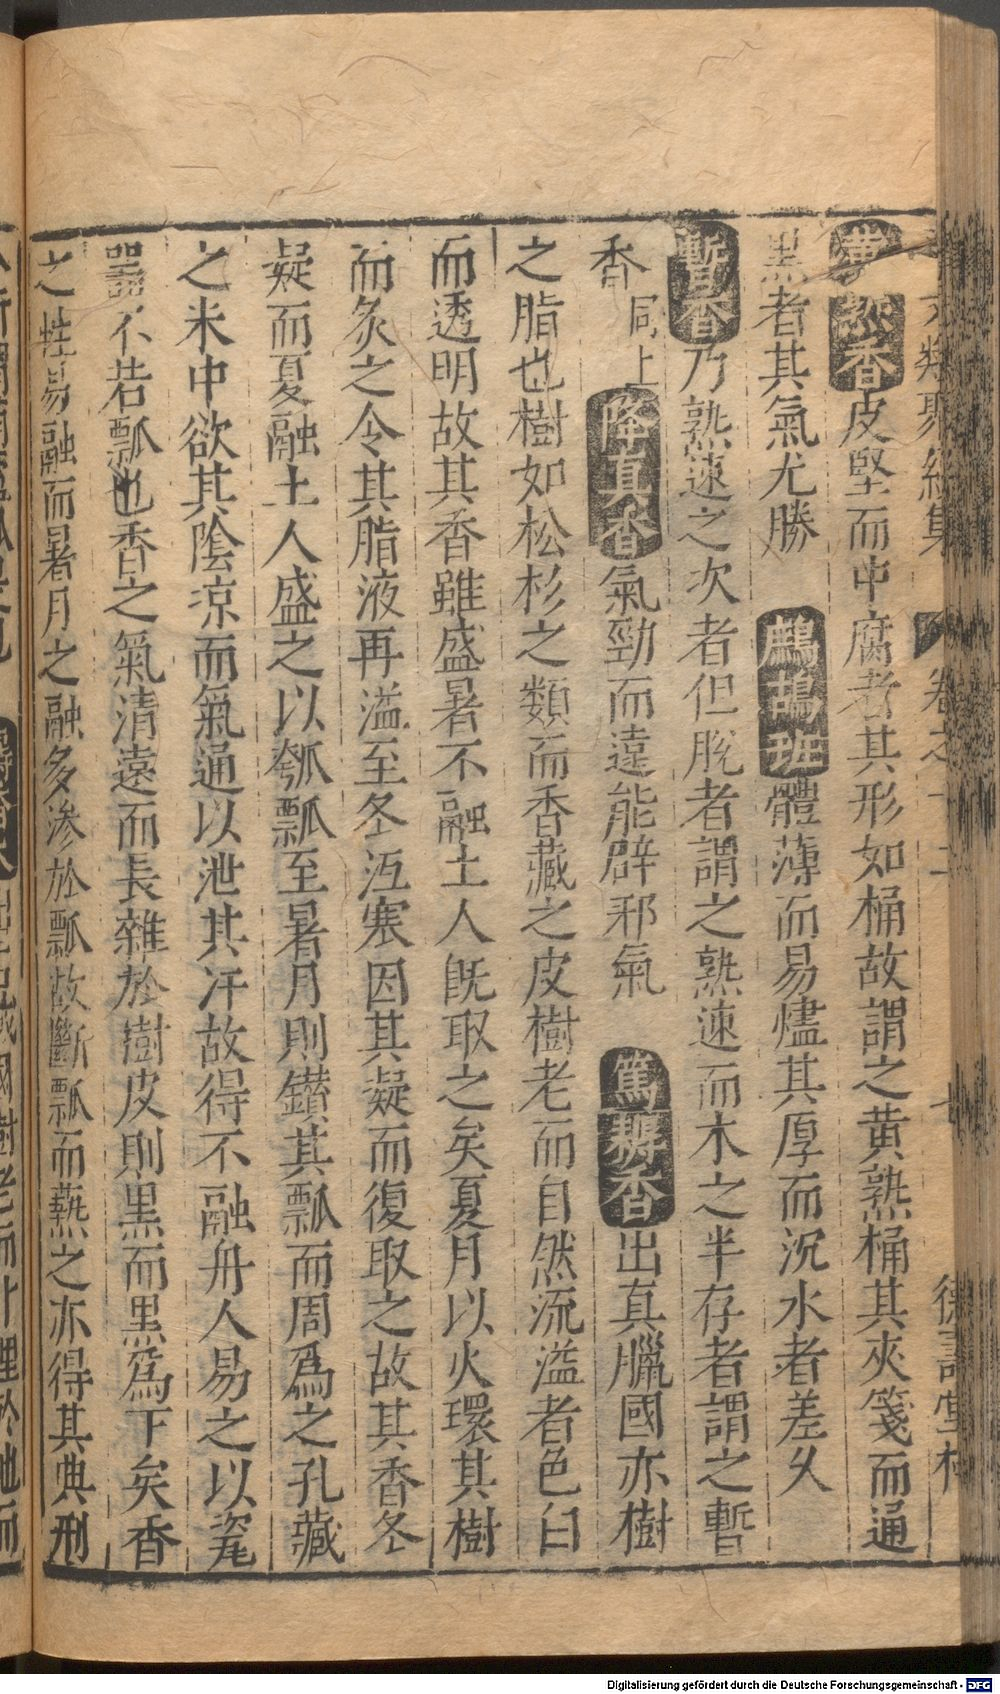 黄熟香皮堅而中腐者其形如桶故謂之黄熟桶其夾箋而通
黑者其氣尤勝　鷓鴣班體薄而易燼其厚而沉水者差久
暫香乃熟速之次者但脫者謂之熟速而木之半存者謂之暫
香同上降真香氣勁而遠能辟邪氣　篤耨香出真臘國亦樹
之脂也樹如松杉之類而香藏之皮樹老而自然流溢者色白
而透明故其香雖盛暑不融土人既取之矣夏月以火環其樹
而炙之令其脂液再溢至冬沍寒因其凝而復取之故其香冬
凝而夏融土人盛之以瓠瓢至暑月則鑽其瓢而周爲之孔藏
之米中欲其陰凉而氣通以泄其汗故得不融舟人易之以瓷
器不若瓢也香之氣清遠而長雜於樹皮則黑而黑爲下矣香
之性易融而暑月之融多滲於瓢故斷瓢而爇之亦得其典刑
Digitalisierung gefördert durch die Deutsche Forschungsgemeinschaft - DFG